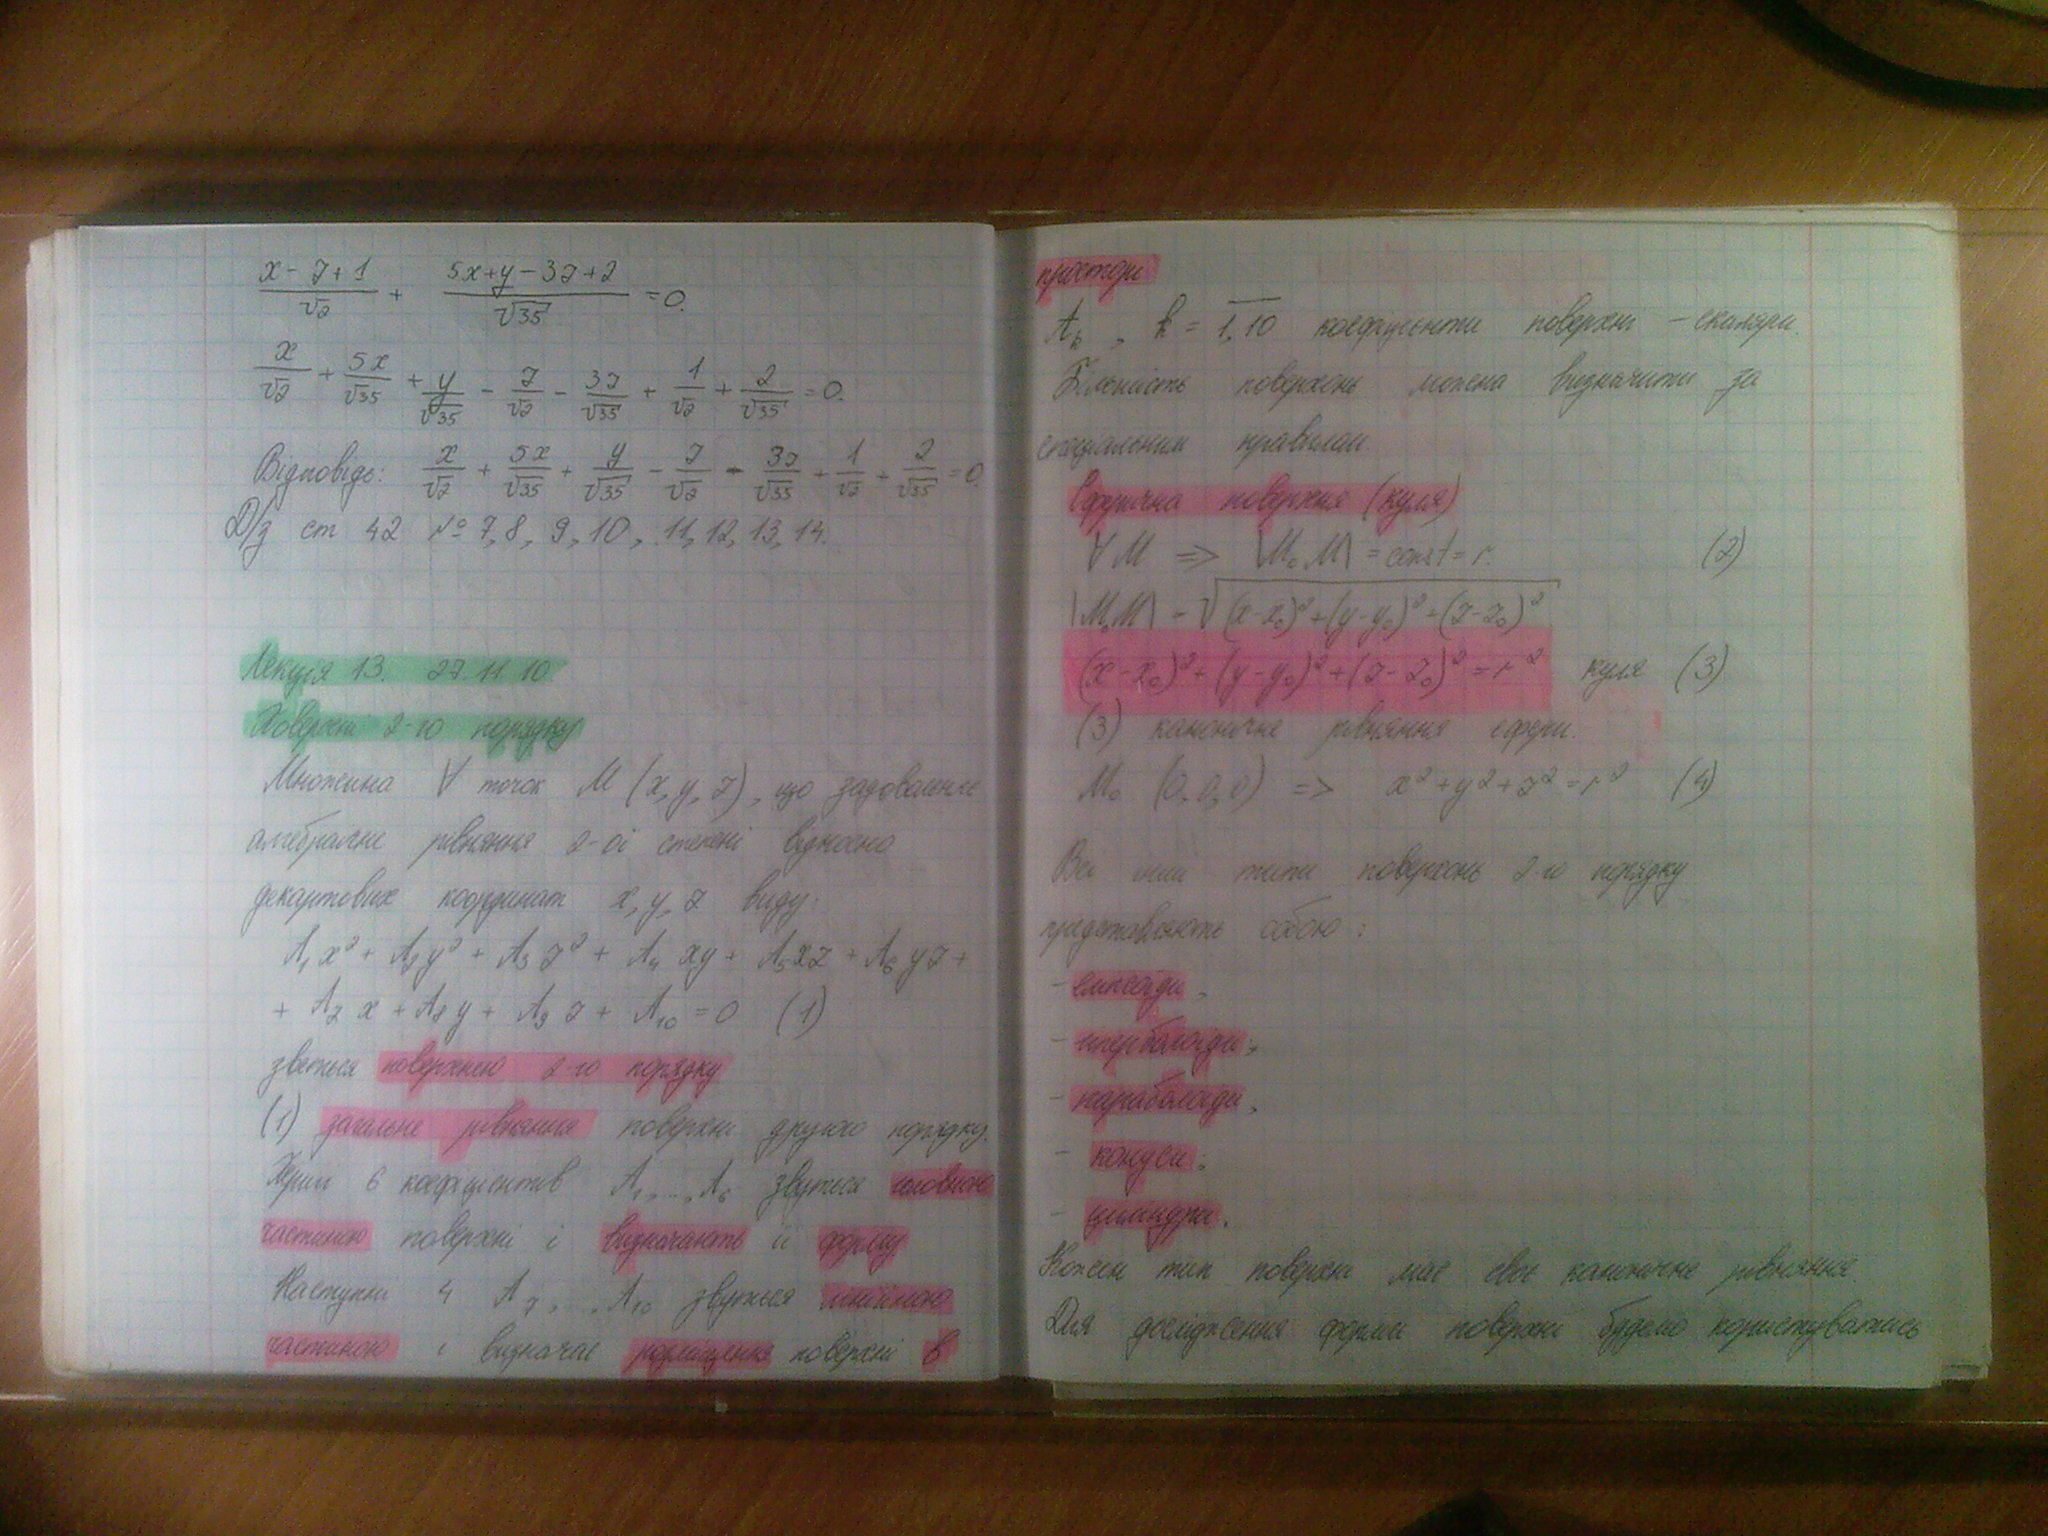 x - z + 1 / √2 + 5x + y - 3z + 2 / √35 = 0.
x/√2 + 5x/√35 + y/√35 - z/√2 - 3z/√35 + 1/√2 + 2/√35 = 0.
Відповідь: x/√2 + 5x/√35 + y/√35 - z/√2 - 3z/√35 + 1/√2 + 2/√35 = 0
Д/з ст 42 № 7, 8, 9, 10, 11, 12, 13, 14.
Лекція 13. 27.11.10
Поверхні 2-го порядку
Множина ∀ точок M (x, y, z), що задовольняє
алгебраїчне рівняння 2-ої степені відносно
декартових координат x, y, z виду:
A₁x² + A₂y² + A₃z² + A₄xy + A₅xz + A₆yz +
+ A₇x + A₈y + A₉z + A₁₀ = 0 (1)
зветься поверхнею 2-го порядку
(1) загальне рівняння поверхні другого порядку.
Перші 6 коефіцієнтів A₁, ..., A₆ звуться головною
частиною поверхні і визначають її форму
Наступні 4 A₇, ..., A₁₀ звуться лінійною
частиною і визначає розміщення поверхні в
просторі
Aₖ, k = 1,10 коефіцієнти поверхні - скаляри.
Більшість поверхонь можна визначити за
спеціальним правилом.
Сферична поверхня (куля)
∀ M => |M₀M| = const = r. (2)
|M₀M| = √(x-x₀)² + (y-y₀)² + (z-z₀)²
(x-x₀)² + (y-y₀)² + (z-z₀)² = r² куля (3)
(3) канонічне рівняння сфери.
M₀ (0, 0, 0) => x² + y² + z² = r² (4)
Всі інші типи поверхонь 2-го порядку
представляють собою:
- еліпсоїди,
- гіперболоїди,
- параболоїди,
- конуси,
- циліндри.
Кожен тип поверхні має своє канонічне рівняння
Для дослідження форми поверхні будемо користуватись